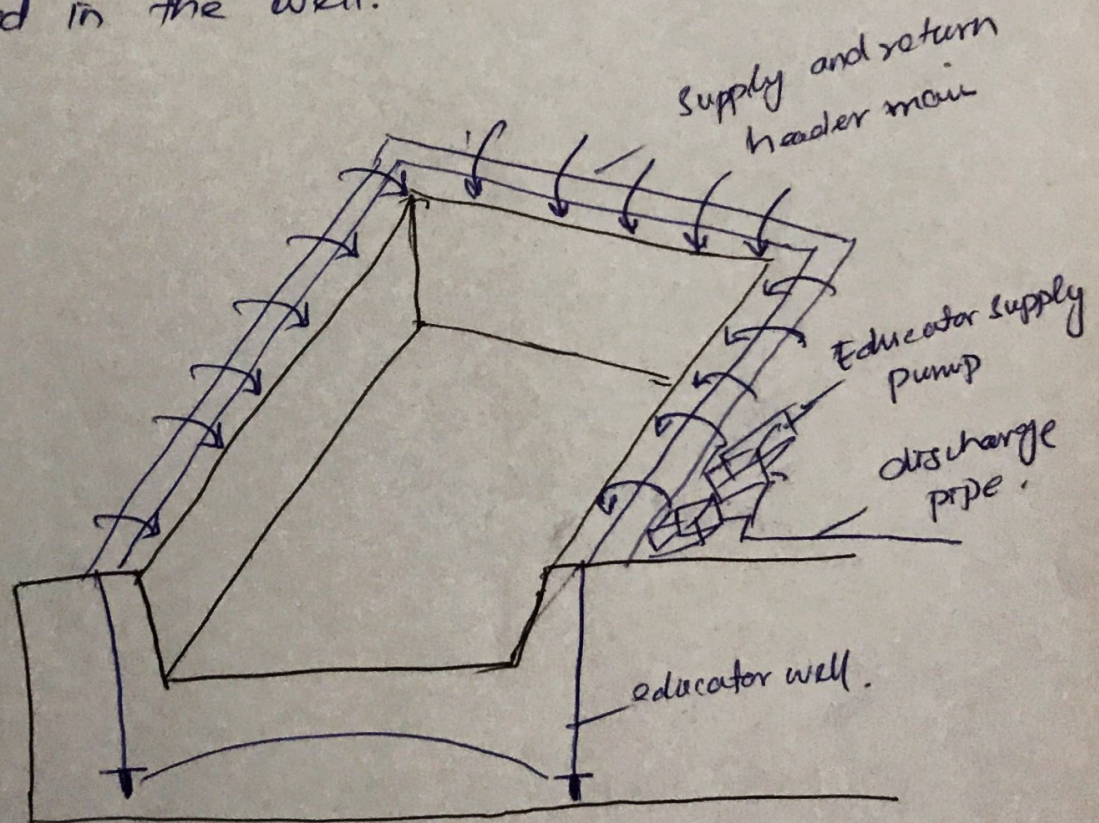 d in the well.
Supply and return
header main
Educator supply
pump
discharge
pipe.
educator well.